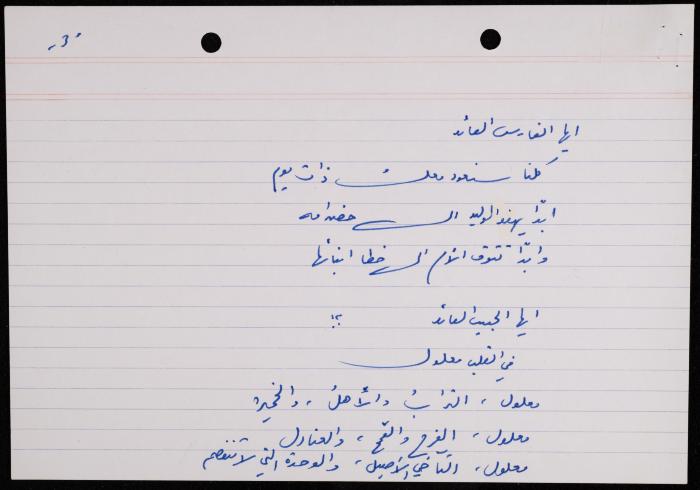 3
ايها الفارس العائد
كلنا سنعود معك ذات يوم
ابداً يهفو الوليد الى
وابداً تتوق الأم الى خطا ابنائها
ايها الحبيب العائد
في القلب معلول
معلول، التراب والأهل، والخميرة
معلول، الفرح والقمح، والعنادل
معلول، التآخي الأصيل، والوحدة التي لا تنفصم